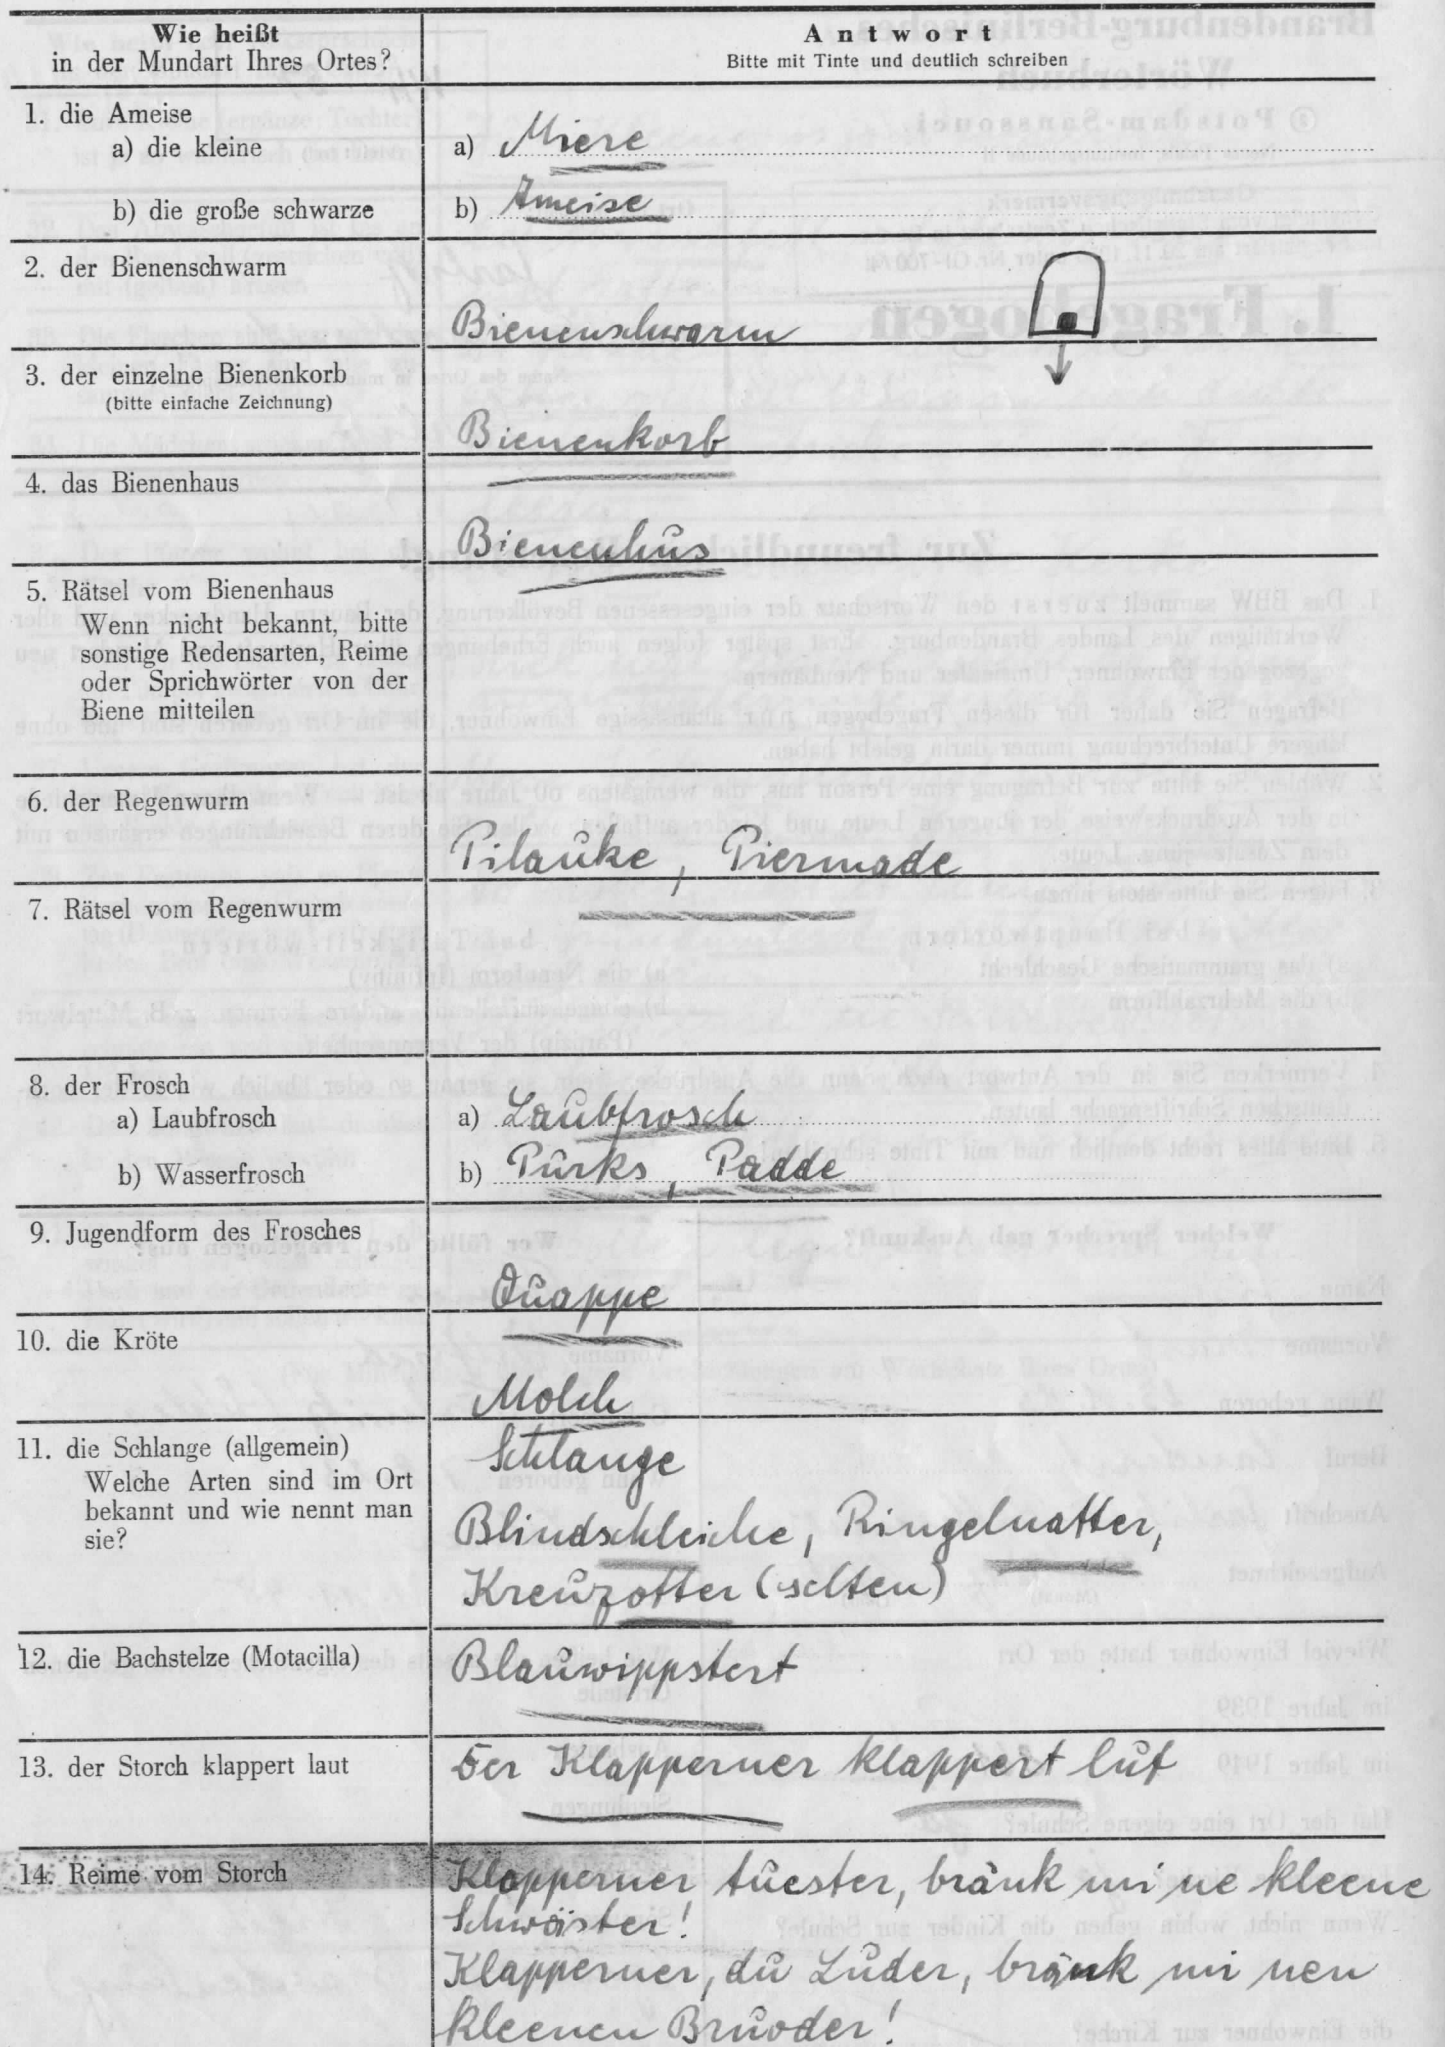 Wie heißt
in der Mundart Ihres Ortes?
Antwort
Bitte mit Tinte und deutlich schreiben
1. die Ameise
a) die kleine
a) Miere
b) die große schwarze
b) Ameise
2. der Bienenschwarm
Bienenschwarm
3. der einzelne Bienenkorb
(bitte einfache Zeichnung)
Bienenkorb
4. das Bienenhaus
Bienenhus
5. Rätsel vom Bienenhaus
Wenn nicht bekannt, bitte
sonstige Redensarten, Reime
oder Sprichwörter von der
Biene mitteilen
6. der Regenwurm
Pilauke, Piermade
7. Rätsel vom Regenwurm
8. der Frosch
a) Laubfrosch
a) Laubfrosch
b) Wasserfrosch
b) Purks, Padde
9. Jugendform des Frosches
Quappe
10. die Kröte
Molch
11. die Schlange (allgemein)
Welche Arten sind im Ort
bekannt und wie nennt man
sie?
Schlange
Blindschleiche, Ringelnatter,
Kreuzotter (selten)
12. die Bachstelze (Motacilla)
Blauwippstert
13. der Storch klappert laut
Der Klapperner klappert lut
14. Reime vom Storch
Klapperner tuester, bränk mi ne kleene
Schwäster!
Klapperner, du Luder, bränk mi nen
kleenen Bruoder!